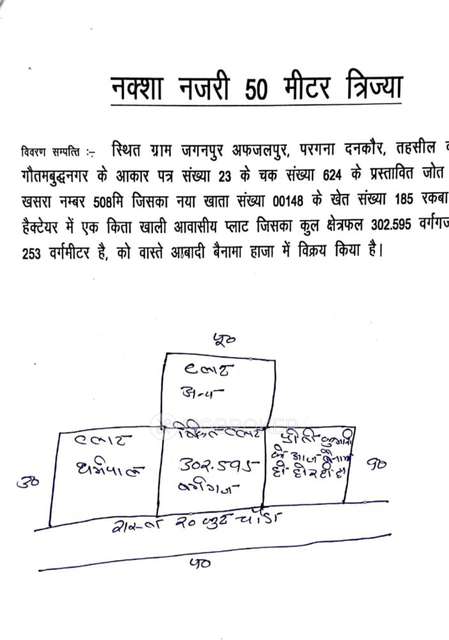 नक्शा नजरी 50 मीटर त्रिज्या
विवरण सम्पत्ति :- स्थित ग्राम जगनपुर अफजलपुर, परगना दनकौर, तहसील व
गौतमबुद्धनगर के आकार पत्र संख्या 23 के चक संख्या 624 के प्रस्तावित जोत
खसरा नम्बर 508मि जिसका नया खाता संख्या 00148 के खेत संख्या 185 रकबा
हैक्टेयर में एक किता खाली आवासीय प्लाट जिसका कुल क्षेत्रफल 302.595 वर्गगज
253 वर्गमीटर है, को वास्ते आबादी बैनामा हाजा में विक्रय किया है।
पू०
प्लाट
अन्य
प्लाट
धर्मपाल
विक्रित प्लाट
302.595
वर्गगज
प्रीति कुमारी
के आज बैनामा
ही हो रही है
उ०
द०
रास्ता २० फुट चौडा
प०